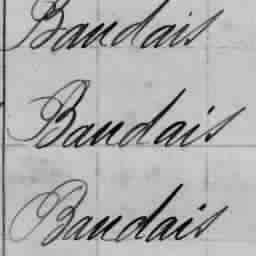 Baudais
Baudais
Baudais